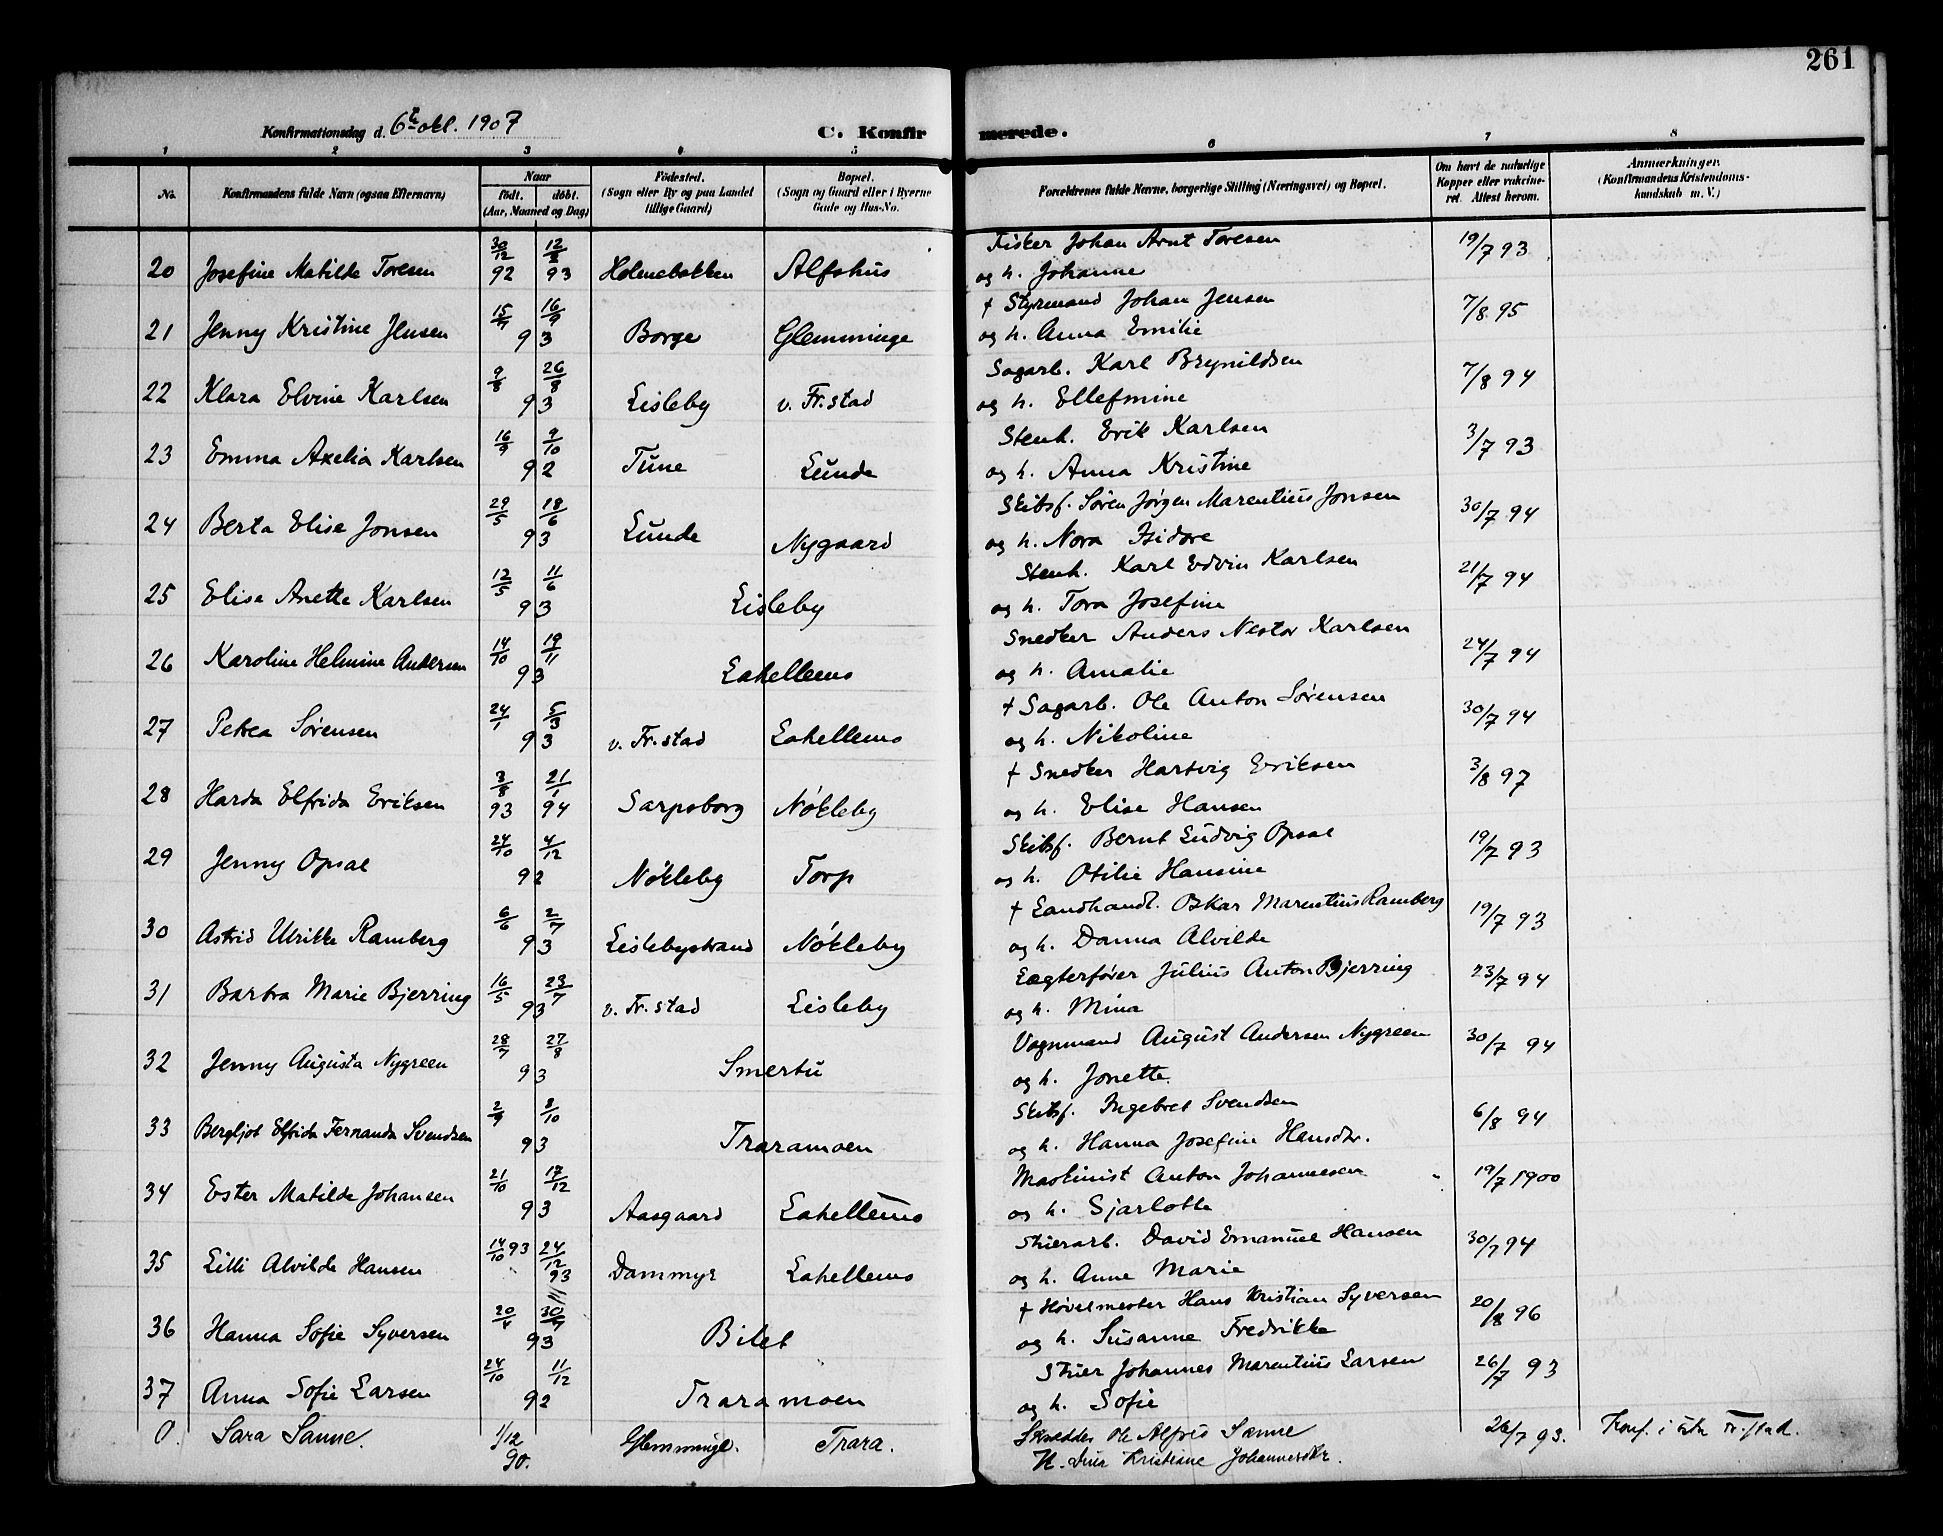 261
Konfirmationsdag d. 6te okt. 1907
C. Konfirmerede.
1 2 3 4 5 6 7 8
No. Konfirmandens fulde Navn (ogsaa Efternavn) Naar født. døbt. (Aar, Maaned og Dag) Fødested. (Sogn eller By og paa Landet tillige Gaard) Bopæl. (Sogn og Gaard eller i Byerne Gade og Hus-No. Forældrenes fulde Navne, borgerlige Stilling (Næringsvei) og Bopæl. Om havt de naturlige Kopper eller vaccineret. Attest herom. Anmærkninger. (Konfirmandens Kristendomskundskab m. V.)
20 Josefine Matilde Toresen 30/12 92 12/2 93 Holmebakken Alfshus Fisker Johan Arnt Toresen 19/7 93
og h. Johanne
21 Jenny Kristine Jensen 15/7 16/9 93 Borge Glemminge † Styrmand Johan Jensen 7/8 95
og h. Anna Emilie
22 Klara Elvine Karlsen 9/8 26/8 93 Lisleby v. Fr.stad Sagarb. Karl Brynildsen 7/8 94
og h. Ellefmine
23 Emma Axelia Karlsen 16/9 9/10 92 Tune Lunde Stenh. Erik Karlsen 3/7 93
og h. Anna Kristine
24 Berta Elise Jonsen 29/5 18/6 93 Lunde Nygaard Skibsf. Søren Jørgen Marentius Jonsen 30/7 94
og h. Nora Isidore
25 Elise Anette Karlsen 12/5 11/6 93 Lisleby Stenh. Karl Edvin Karlsen 21/7 94
og h. Tora Josefine
26 Karoline Helmine Andersen 14/10 19/11 93 Lahellems Snedker Anders Nestor Karlsen 24/7 94
og h. Amalie
27 Petrea Sørensen 24/1 5/3 93 v. Fr.stad Lahellems † Sagarb. Ole Anton Sørensen 30/7 94
og h. Nikoline
28 Harda Elfrida Eriksen 3/8 93 21/1 94 Sarpsborg Nökleby † Snedker Hartvig Eriksen 3/8 97
og h. Elise Hansen
29 Jenny Opsal 24/10 4/12 92 Nökleby Torp Skibsf. Bernt Ludvig Opsal 19/7 93
og h. Otilie Hansine
30 Astrid Ulrikke Ramberg 6/6 2/7 93 Lislebystrand Nökleby † Landhandl. Oskar Marentius Ramberg 19/7 93
og h. Danna Alvilde
31 Barbra Marie Bjerring 16/5 23/7 93 v. Fr.stad Lisleby Lægterfører Julius Anton Bjerring 23/7 94
og h. Mina
32 Jenny Augusta Nygreen 28/7 27/8 93 Smertu Vognmand August Andersen Nygreen 30/7 94
og h. Jonette.
33 Bergljot Elfrida Fernanda Svendsen 2/9 8/10 93 Traramoen Skibsf. Ingebret Svendsen 6/8 94
og h. Hanna Josefine Hansdtr.
34 Ester Matilde Johansen 21/10 17/12 93 Aasgaard Lahellems Maskinist Anton Johannesen 19/7 1900
og h. Sjarlotte
35 Lilli Alvilde Hansen 14/10 93 24/12 93 Dammyr Lahellems Stuerarb. David Emanuel Hansen 30/7 94
og h. Anne Marie
36 Hanna Sofie Syversen 20/4 30/7 93 Bilet † Høvelmester Hans Kristian Syversen 20/8 96
og h. Susanne Fredrikke
37 Anna Sofie Larsen 24/10 11/12 92 Traramoen Stuer Johannes Marentius Larsen 26/7 93
og h. Sofie
0. Sara Sanne. 1/12 90. Glemminge. Trara. Skrædder Ole Alfred Sanne 26/7 93. Konf. i Fr.stad.
H. Kristiane Johannesdtr.